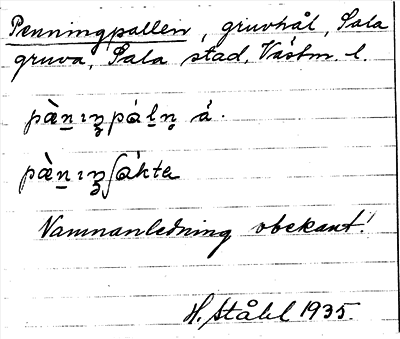 Penningpallen, gruvhål, Sala
gruva, Sala stad, Västm. l.
pæ̀n̲ıŋpál̲n̥ å.
pæ̀n̲ıŋʃákta
Namnanledning obekant!
H. Ståhl 1935.